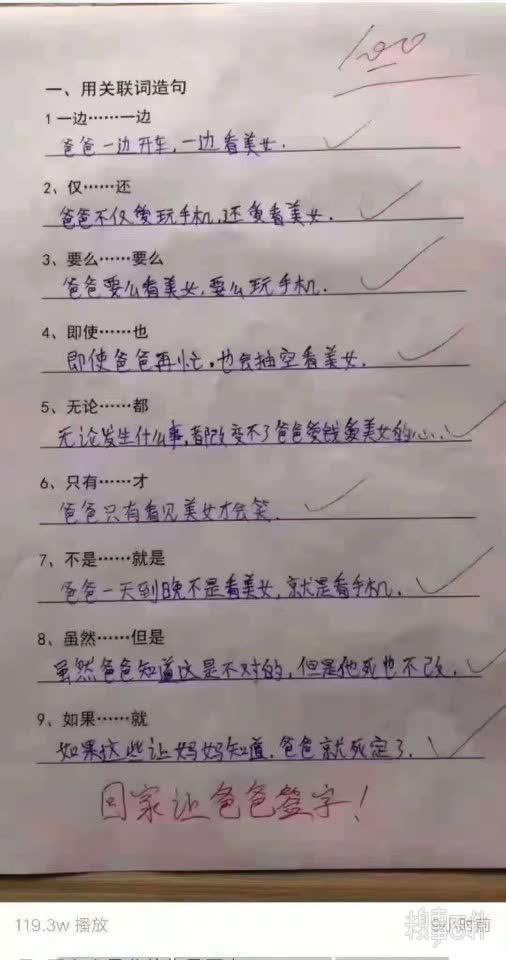 100
一、用关联词造句
1 一边……一边
爸爸一边开车,一边看美女.
2、仅……还
爸爸不仅爱玩手机,还爱看美女.
3、要么……要么
爸爸要么看美女,要么玩手机.
4、即使……也
即使爸爸再忙,也会抽空看美女.
5、无论……都
无论发生什么事,都改变不了爸爸爱钱爱美女的心...
6、只有……才
爸爸只有看见美女才会笑.
7、不是……就是
爸爸一天到晚不是看美女,就是看手机.
8、虽然……但是
虽然爸爸知道这是不对的,但是他死也不改.
9、如果……就
如果这些让妈妈知道,爸爸就死定了.
回家让爸爸签字!
119.3w 播放
9小时前